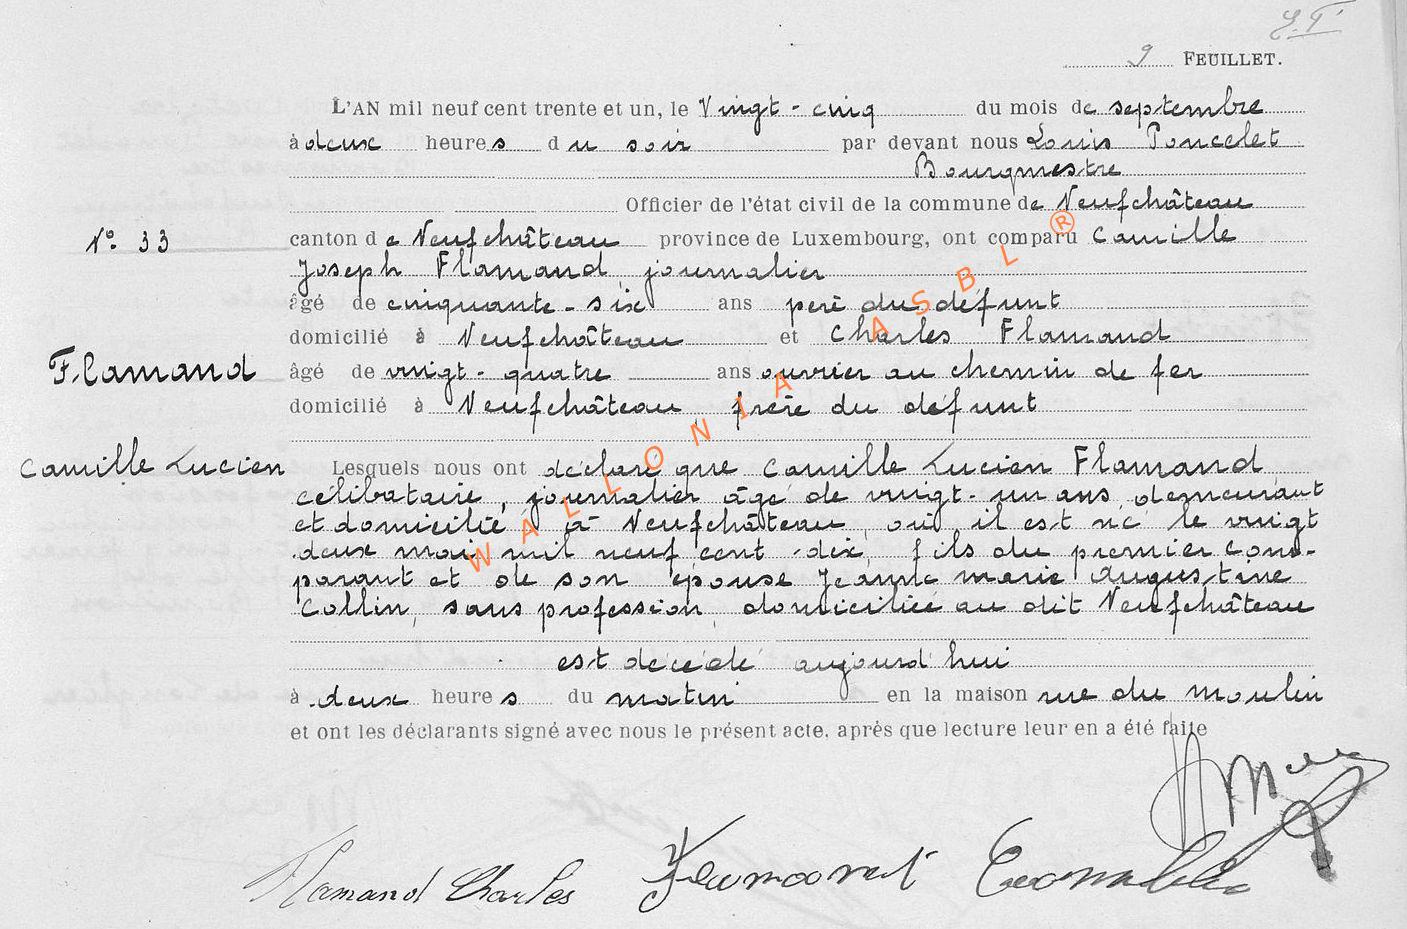 9 FEUILLET.
L'AN mil neuf cent trente et un, le Vingt-cinq du mois de septembre
à deux heures du soir par devant nous Louis Poncelet
Bourgmestre
Officier de l'état civil de la commune de Neufchâteau
N° 33 canton de Neufchâteau province de Luxembourg, ont comparu Camille
Joseph Flamand journalier
âgé de cinquante-six ans père du défunt
domicilié à Neufchâteau et Charles Flamand
Flamand âgé de vingt-quatre ans ouvrier au chemin de fer
domicilié à Neufchâteau frère du défunt
Camille Lucien Lesquels nous ont déclaré que Camille Lucien Flamand
célibataire, journalier âgé de vingt-un ans demeurant
et domicilié à Neufchâteau, où il est né le vingt
deux mai mil neuf cent dix, fils du premier com-
parant et de son épouse Jeanne marie Augustine
Collin, sans profession, domiciliée au dit Neufchâteau
est décédé aujourd'hui
à deux heures du matin en la maison rue du moulin
et ont les déclarants signé avec nous le présent acte, après que lecture leur en a été faite
Flamand Charles
WALLONIA ASBL ®